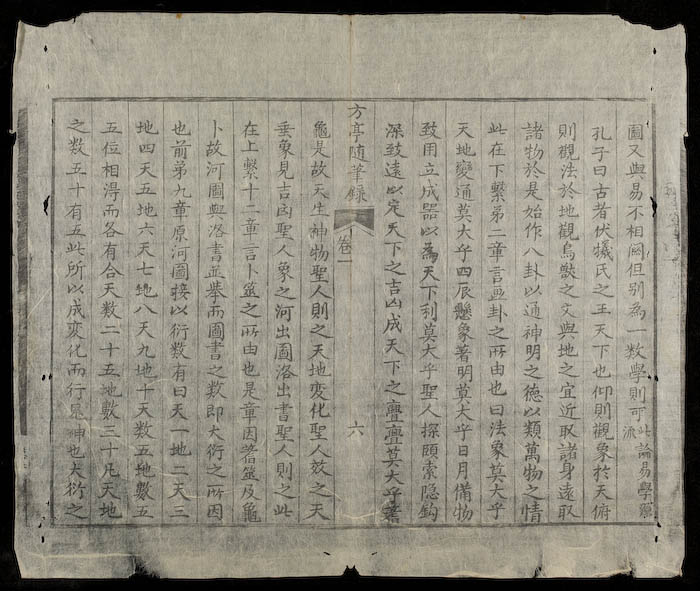 圖又與易不相関但别為一數學則可此論易學源流
孔子曰古者伏犧氏之王天下也仰則觀象於天俯
則觀法於地觀鳥獸之文與地之宜近取諸身遠取
諸物於是始作八卦以通神明之德以類萬物之情
此在下繫第二章言畫卦之所由也曰法象莫大乎
天地變通莫大乎四辰懸象著明莫大乎日月備物
致用立成器以為天下利莫大乎聖人探頤索隐鈎
深致遠以定天下之吉凶成天下之亹亹莫大乎蓍
方亭隨筆録 卷一 六
龜是故天生神物聖人則之天地变化聖人效之天
垂象見吉凶聖人象之河出圖洛出書聖人則之此
在上繫十二章言卜筮之所由也是章因蓍筮及龜
卜故河圖與洛書並舉而圖書之數即大衍之所因
也前第九章原河圖接以衍數有曰天一地二天三
地四天五地六天七地八天九地十天数五地數五
五位相得而各有合天数二十五地數三十凡天地
之数五十有五此所以成变化而行鬼神也大衍之